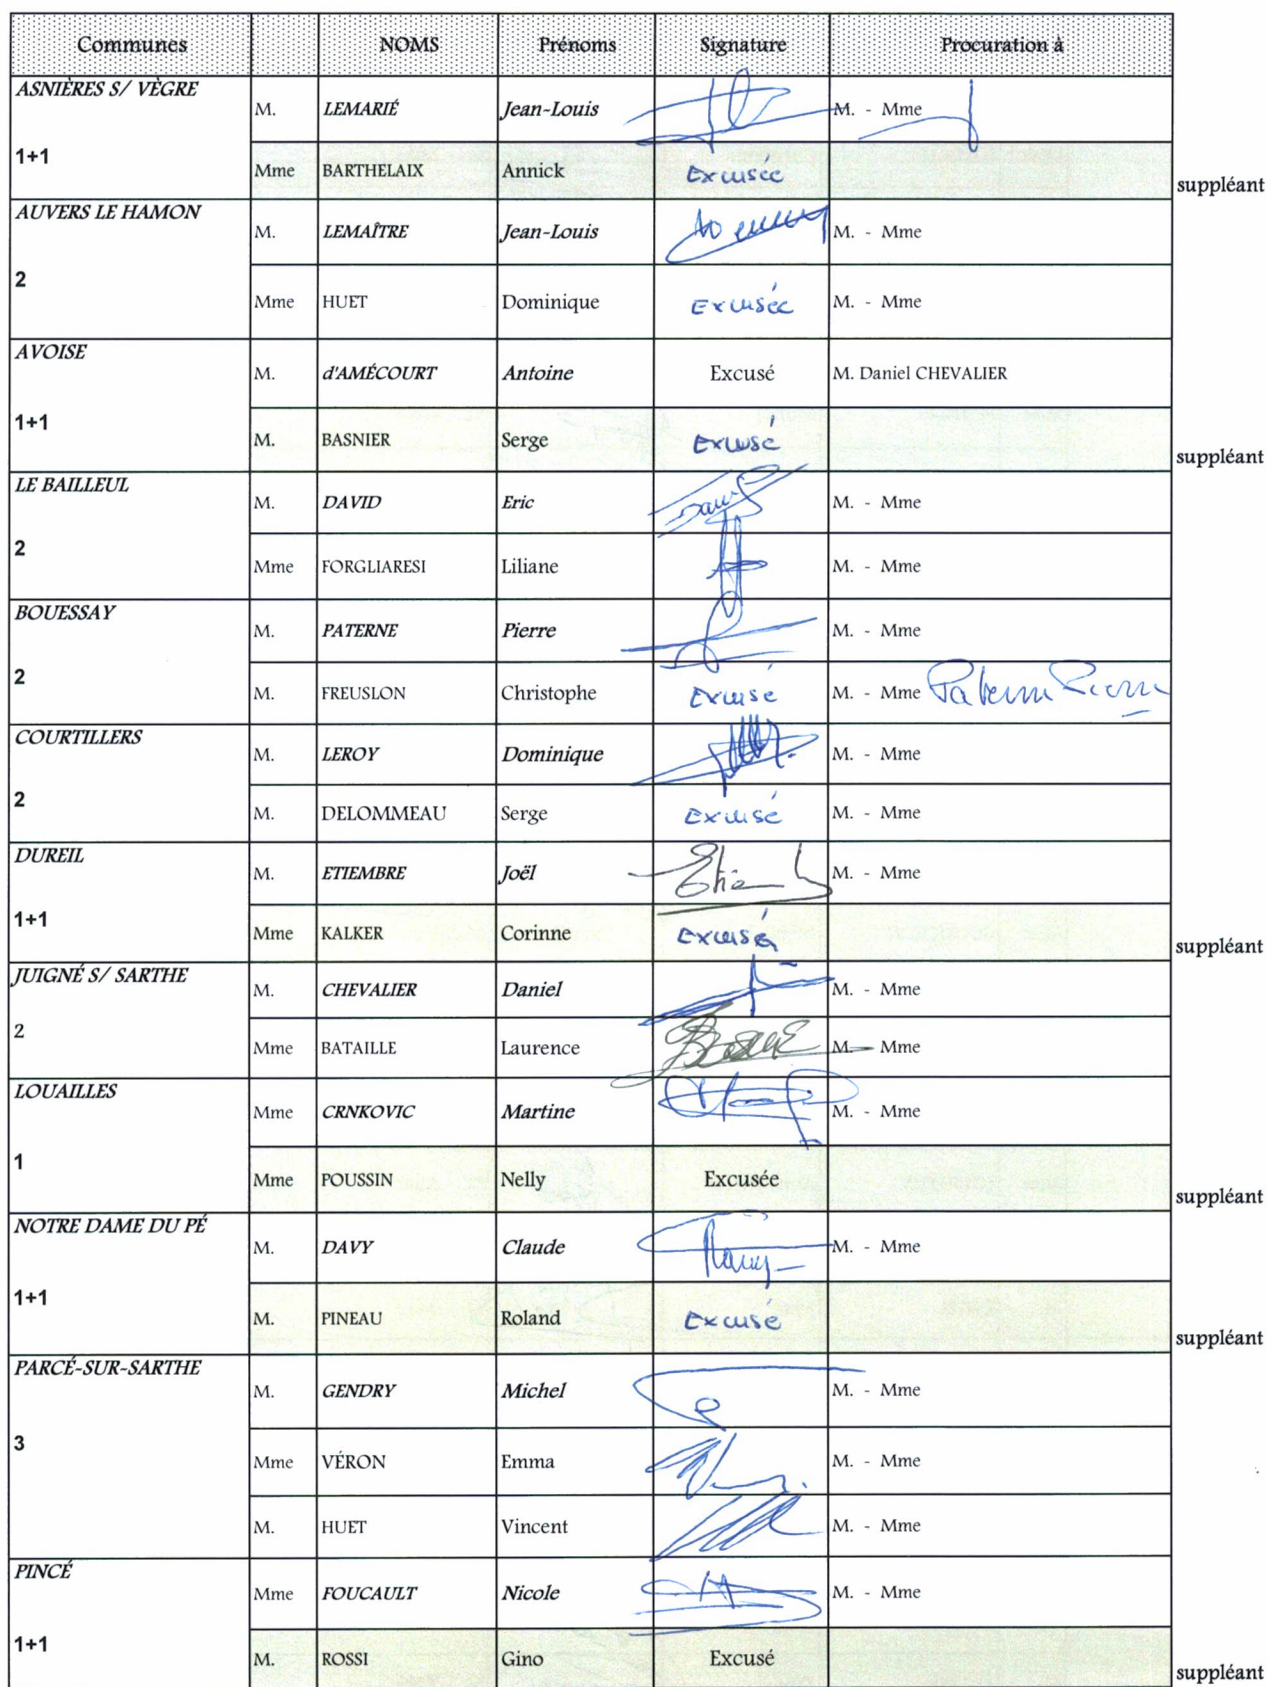 Communes NOMS Prénoms Signature Procuration à
ASNIÈRES S/ VÈGRE
M. LEMARIÉ Jean-Louis M. - Mme
1+1
Mme BARTHELAIX Annick Excusée suppléant
AUVERS LE HAMON
M. LEMAÎTRE Jean-Louis M. - Mme
2
Mme HUET Dominique Excusée M. - Mme
AVOISE
M. d'AMÉCOURT Antoine Excusé M. Daniel CHEVALIER
1+1
M. BASNIER Serge Excusé suppléant
LE BAILLEUL
M. DAVID Eric M. - Mme
2
Mme FORGLIARESI Liliane M. - Mme
BOUESSAY
M. PATERNE Pierre M. - Mme
2
M. FREUSLON Christophe Excusé M. - Mme Paterne Pierre
COURTILLERS
M. LEROY Dominique M. - Mme
2
M. DELOMMEAU Serge Excusé M. - Mme
DUREIL
M. ETIEMBRE Joël M. - Mme
1+1
Mme KALKER Corinne Excusée suppléant
JUIGNÉ S/ SARTHE
M. CHEVALIER Daniel M. - Mme
2
Mme BATAILLE Laurence M. - Mme
LOUAILLES
Mme CRNKOVIC Martine M. - Mme
1
Mme POUSSIN Nelly Excusée suppléant
NOTRE DAME DU PÉ
M. DAVY Claude M. - Mme
1+1
M. PINEAU Roland Excusé suppléant
PARCÉ-SUR-SARTHE
M. GENDRY Michel M. - Mme
3
Mme VÉRON Emma M. - Mme
M. HUET Vincent M. - Mme
PINCÉ
Mme FOUCAULT Nicole M. - Mme
1+1
M. ROSSI Gino Excusé suppléant